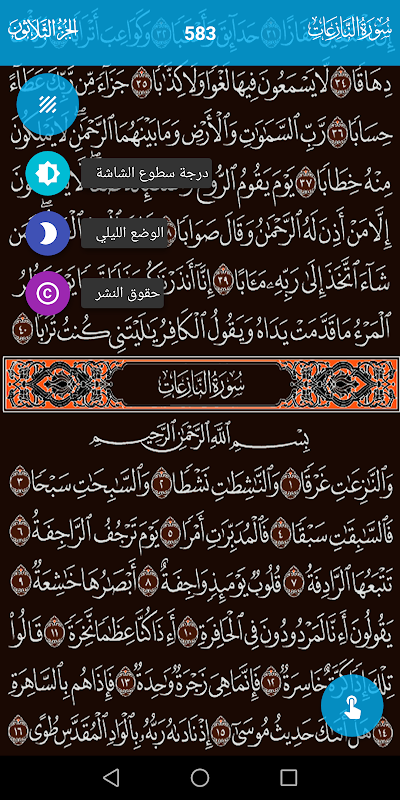 سُورَةُ النَّازِعَاتِ 583 الجزء الثلاثون
حَدَآئِقَ وَأَعْنَٰبًا ﴿٣٢﴾ وَكَوَاعِبَ أَتْرَابًا
دِهَاقًا ﴿٣٤﴾ لَّا يَسْمَعُونَ فِيهَا لَغْوًا وَلَا كِذَّٰبًا ﴿٣٥﴾ جَزَآءً مِّن رَّبِّكَ عَطَآءً
حِسَابًا ﴿٣٦﴾ رَّبِّ ٱلسَّمَٰوَٰتِ وَٱلْأَرْضِ وَمَا بَيْنَهُمَا ٱلرَّحْمَٰنِ لَا يَمْلِكُونَ
درجة سطوع الشاشة
مِنْهُ خِطَابًا ﴿٣٧﴾ يَوْمَ يَقُومُ ٱلرُّوحُ
الوضع الليلي
إِلَّا مَنْ أَذِنَ لَهُ ٱلرَّحْمَٰنُ وَقَالَ صَوَابًا
حقوق النشر
شَآءَ ٱتَّخَذَ إِلَىٰ رَبِّهِۦ مَـَٔابًا ﴿٣٩﴾ إِنَّآ أَنذَرْنَٰكُمْ
ٱلْمَرْءُ مَا قَدَّمَتْ يَدَاهُ وَيَقُولُ ٱلْكَافِرُ يَٰلَيْتَنِى كُنتُ تُرَٰبًۢا ﴿٤٠﴾
سُورَةُ النَّازِعَاتِ
بِسْمِ ٱللَّهِ ٱلرَّحْمَٰنِ ٱلرَّحِيمِ
وَٱلنَّٰزِعَٰتِ غَرْقًا ﴿١﴾ وَٱلنَّٰشِطَٰتِ نَشْطًا ﴿٢﴾ وَٱلسَّٰبِحَٰتِ سَبْحًا ﴿٣﴾
فَٱلسَّٰبِقَٰتِ سَبْقًا ﴿٤﴾ فَٱلْمُدَبِّرَٰتِ أَمْرًا ﴿٥﴾ يَوْمَ تَرْجُفُ ٱلرَّاجِفَةُ ﴿٦﴾
تَتْبَعُهَا ٱلرَّادِفَةُ ﴿٧﴾ قُلُوبٌ يَوْمَئِذٍ وَاجِفَةٌ ﴿٨﴾ أَبْصَٰرُهَا خَٰشِعَةٌ ﴿٩﴾
يَقُولُونَ أَءِنَّا لَمَرْدُودُونَ فِى ٱلْحَافِرَةِ ﴿١٠﴾ أَءِذَا كُنَّا عِظَٰمًا نَّخِرَةً ﴿١١﴾ قَالُوا۟
تِلْكَ إِذًا كَرَّةٌ خَاسِرَةٌ ﴿١٢﴾ فَإِنَّمَا هِىَ زَجْرَةٌ وَٰحِدَةٌ ﴿١٣﴾ فَإِذَا هُم بِٱلسَّاهِرَةِ
﴿١٤﴾ هَلْ أَتَىٰكَ حَدِيثُ مُوسَىٰٓ ﴿١٥﴾ إِذْ نَادَىٰهُ رَبُّهُۥ بِٱلْوَادِ ٱلْمُقَدَّسِ طُوًى ﴿١٦﴾